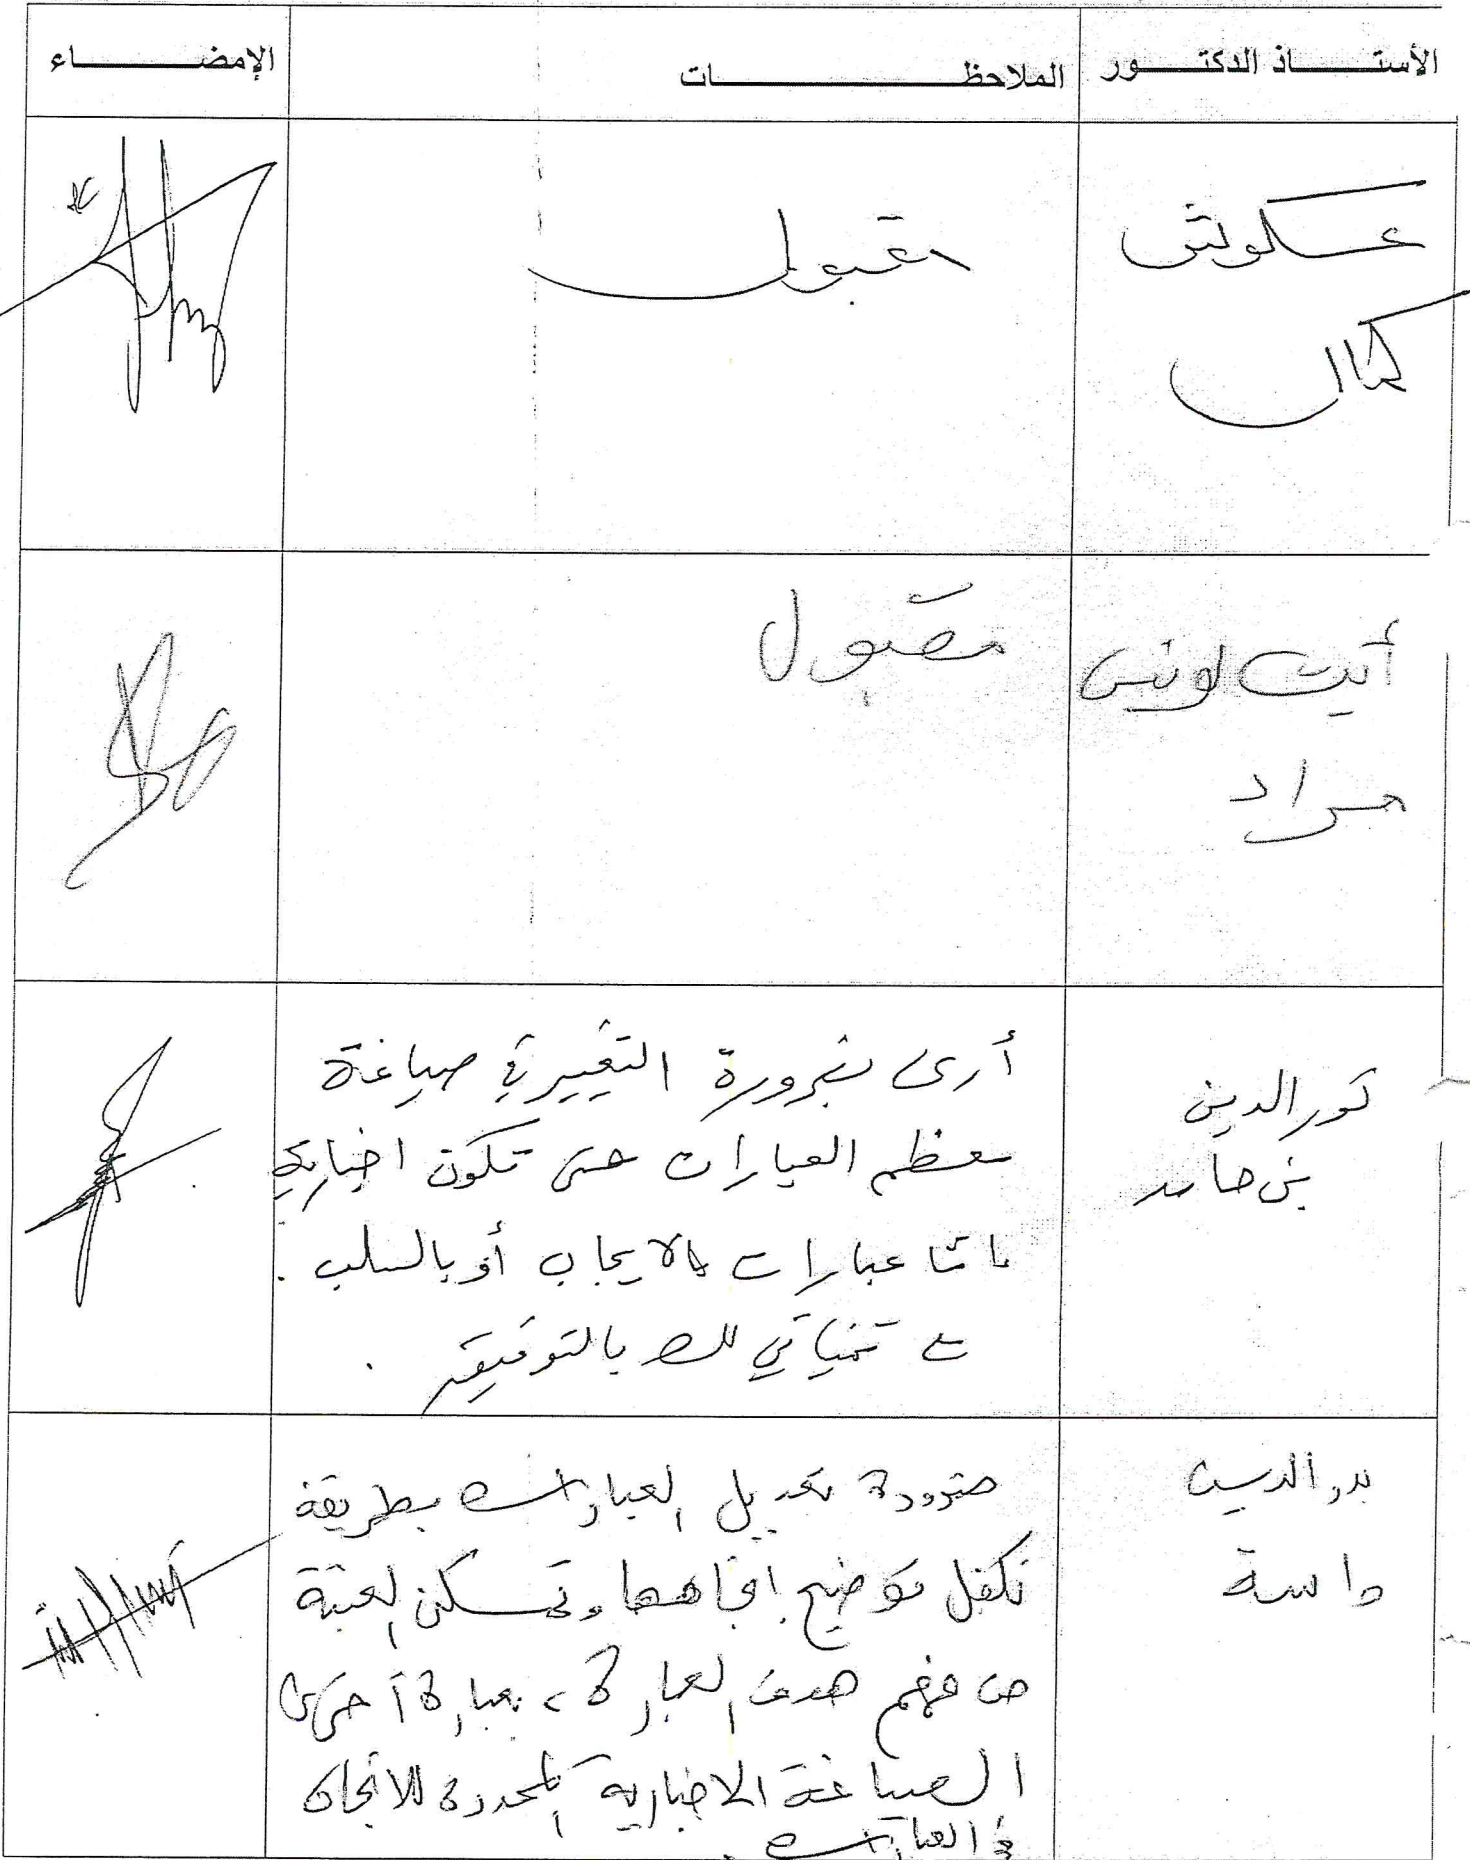 الأستاذ الدكتور الملاحظات الإمضاء
عكوش مقبول
كمال
أيت لونيس مقبول
مراد
نور الدين
بن حامد
أرى بضرورة التغيير في صياغة
معظم العبارات حتى تكون اخبارية
عبارات بالايجاب أو بالسلب .
مع تمنياتي لك بالتوفيق .
بدر الدين
ضرورة تعديل العبارات بطريقة
تكفل توضيح اتجاهها و تمكن العينة
من فهم هدف العبارة ، بعبارة أخرى
الصياغة الاخبارية المحددة للاتجاه
في العبارات .